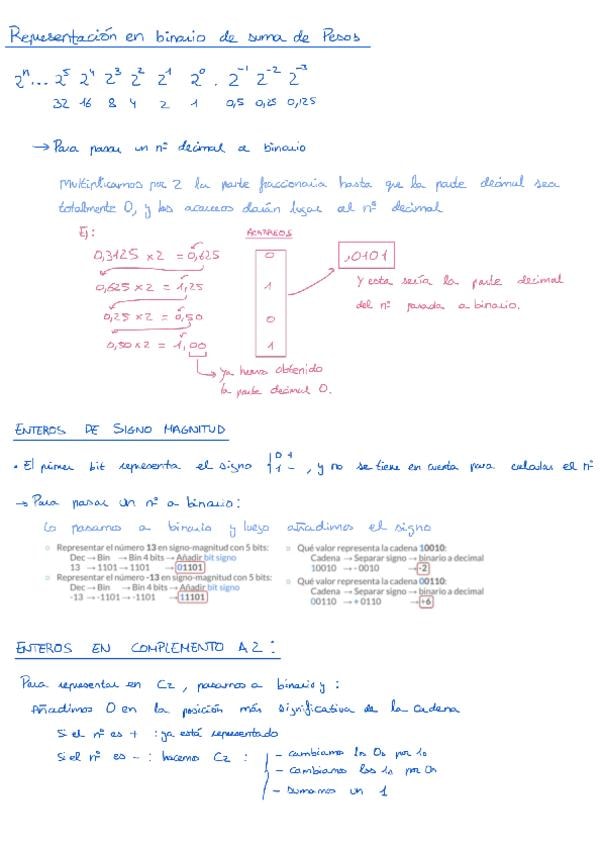 Representación en binario de suma de Pesos
2ⁿ... 2⁵ 2⁴ 2³ 2² 2¹ 2⁰ . 2⁻¹ 2⁻² 2⁻³
32 16 8 4 2 1 0,5 0,25 0,125
→ Para pasar un nº decimal a binario
Multiplicamos por 2 la parte fraccionaria hasta que la parte decimal sea
totalmente 0, y los acarreos darán lugar al nº decimal
Ej: ACARREOS
0,3125 x 2 = 0,625 0 ,0101
0,625 x 2 = 1,25 1 Y esta sería la parte decimal
0,25 x 2 = 0,50 0 del nº pasada a binario.
0,50 x 2 = 1,00 1
→ Ya hemos obtenido
la parte decimal 0.
ENTEROS DE SIGNO MAGNITUD
• El primer bit representa el signo { 0 + 1 - , y no se tiene en cuenta para calcular el nº
→ Para pasar un nº a binario:
Lo pasamos a binario y luego añadimos el signo
○ Representar el número 13 en signo-magnitud con 5 bits:
Dec → Bin → Bin 4 bits → Añadir bit signo
13 → 1101 → 1101 → 01101
○ Representar el número -13 en signo-magnitud con 5 bits:
Dec → Bin → Bin 4 bits → Añadir bit signo
-13 → -1101 → -1101 → 11101
○ Qué valor representa la cadena 10010:
Cadena → Separar signo → binario a decimal
10010 → - 0010 → -2
○ Qué valor representa la cadena 00110:
Cadena → Separar signo → binario a decimal
00110 → + 0110 → +6
ENTEROS EN COMPLEMENTO A 2:
Para representar en C2, pasamos a binario y:
Añadimos 0 en la posición más significativa de la cadena
Si el nº es + : ya está representado
Si el nº es - : hacemos C2 : - cambiamos los 0s por 1s
- cambiamos los 1s por 0s
- sumamos un 1